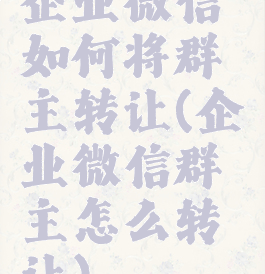 企业微信
如何将群
主转让(企
业微信群
主怎么转
让)